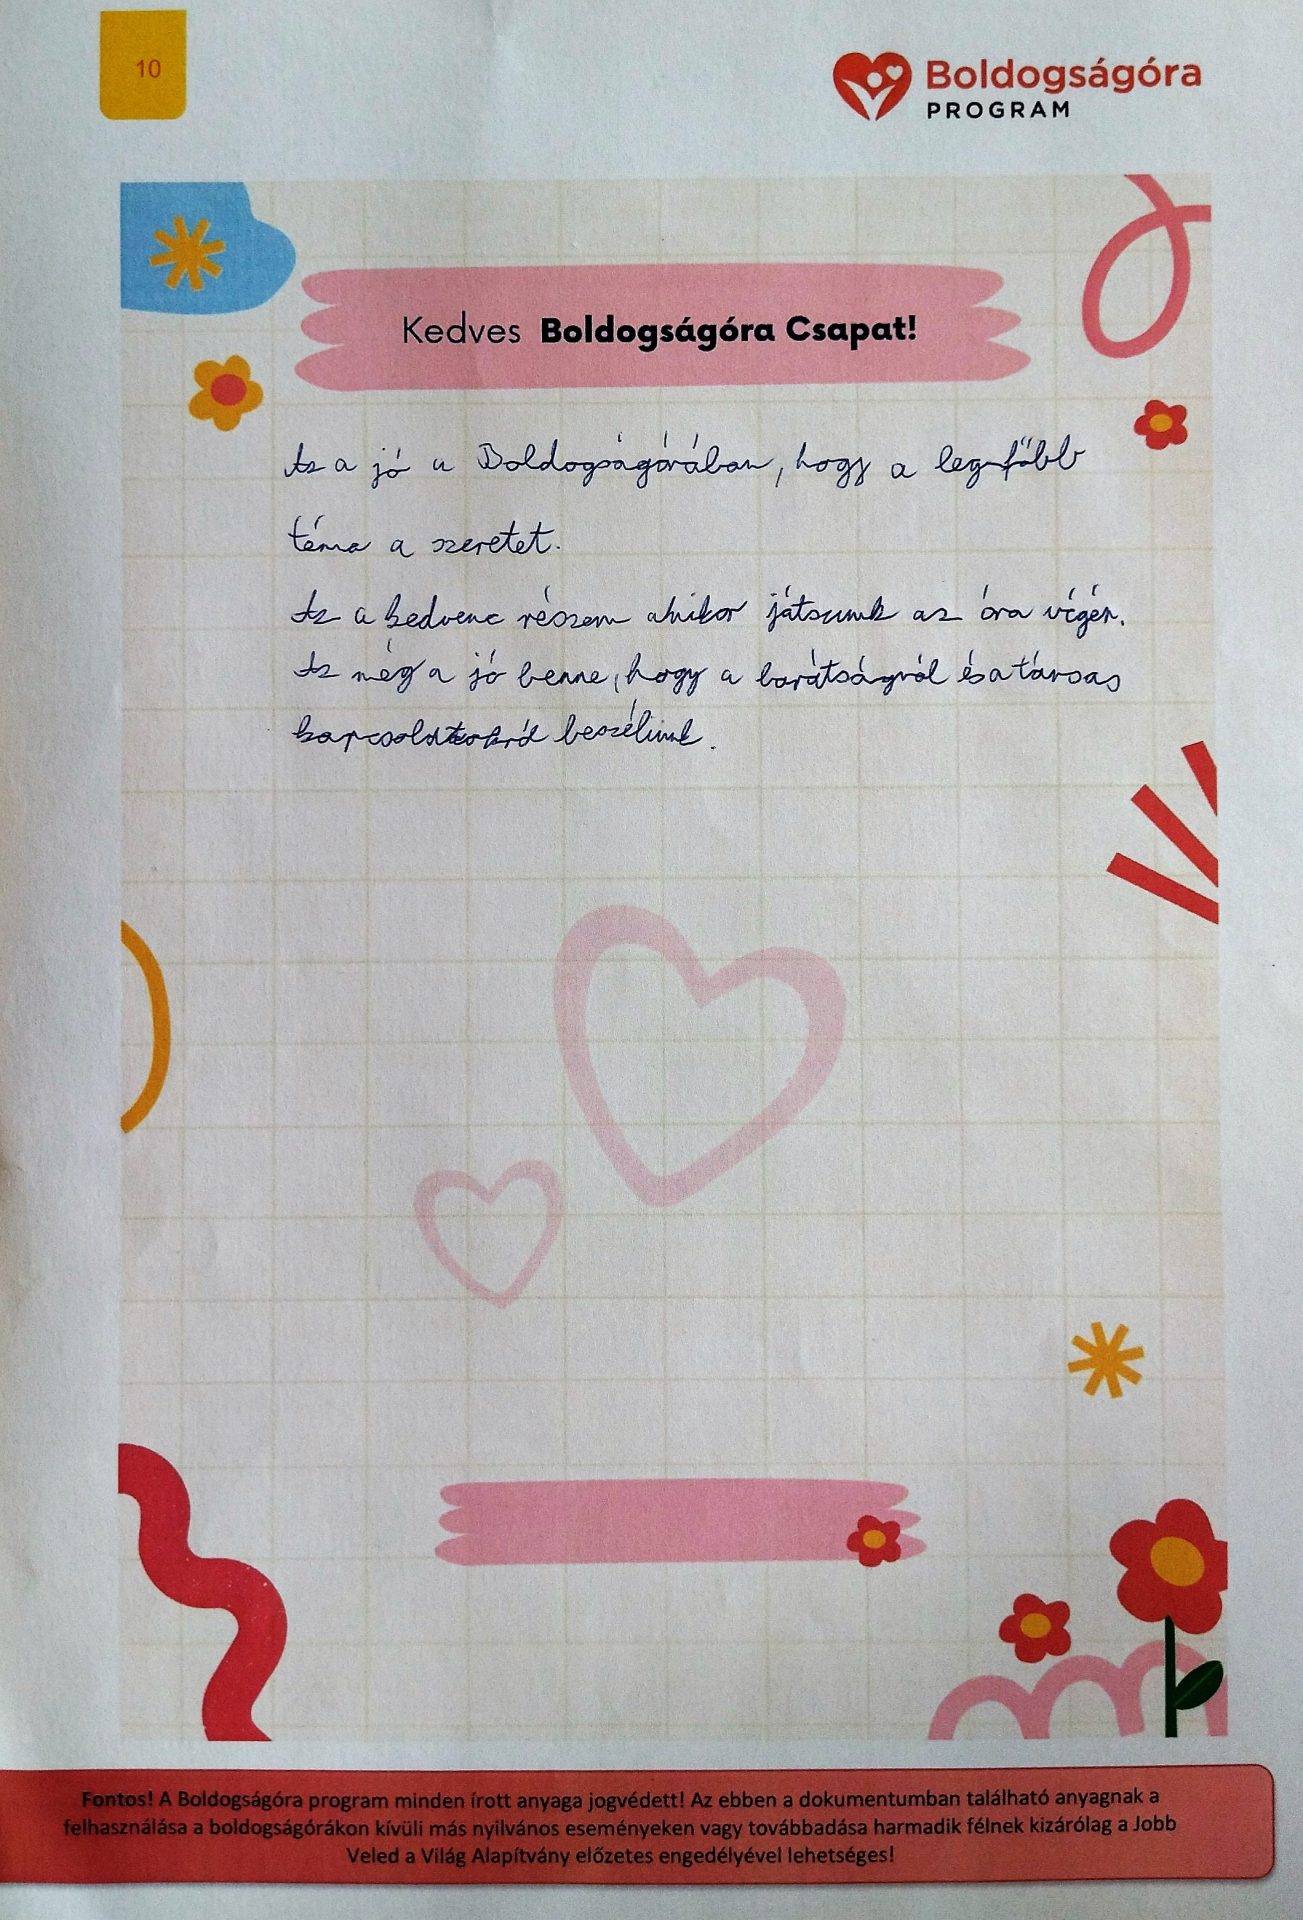 10
Boldogságóra
PROGRAM
Kedves Boldogságóra Csapat!
Az a jó a Boldogságórában, hogy a legfőbb
téma a szeretet.
Az a kedvenc részem amikor játszunk az óra végén.
Az még a jó benne, hogy a barátságról és a társas
kapcsolatokról beszélünk.
Fontos! A Boldogságóra program minden írott anyaga jogvédett! Az ebben a dokumentumban található anyagnak a
felhasználása a boldogságórákon kívüli más nyilvános eseményeken vagy továbbadása harmadik félnek kizárólag a Jobb
Veled a Világ Alapítvány előzetes engedélyével lehetséges!